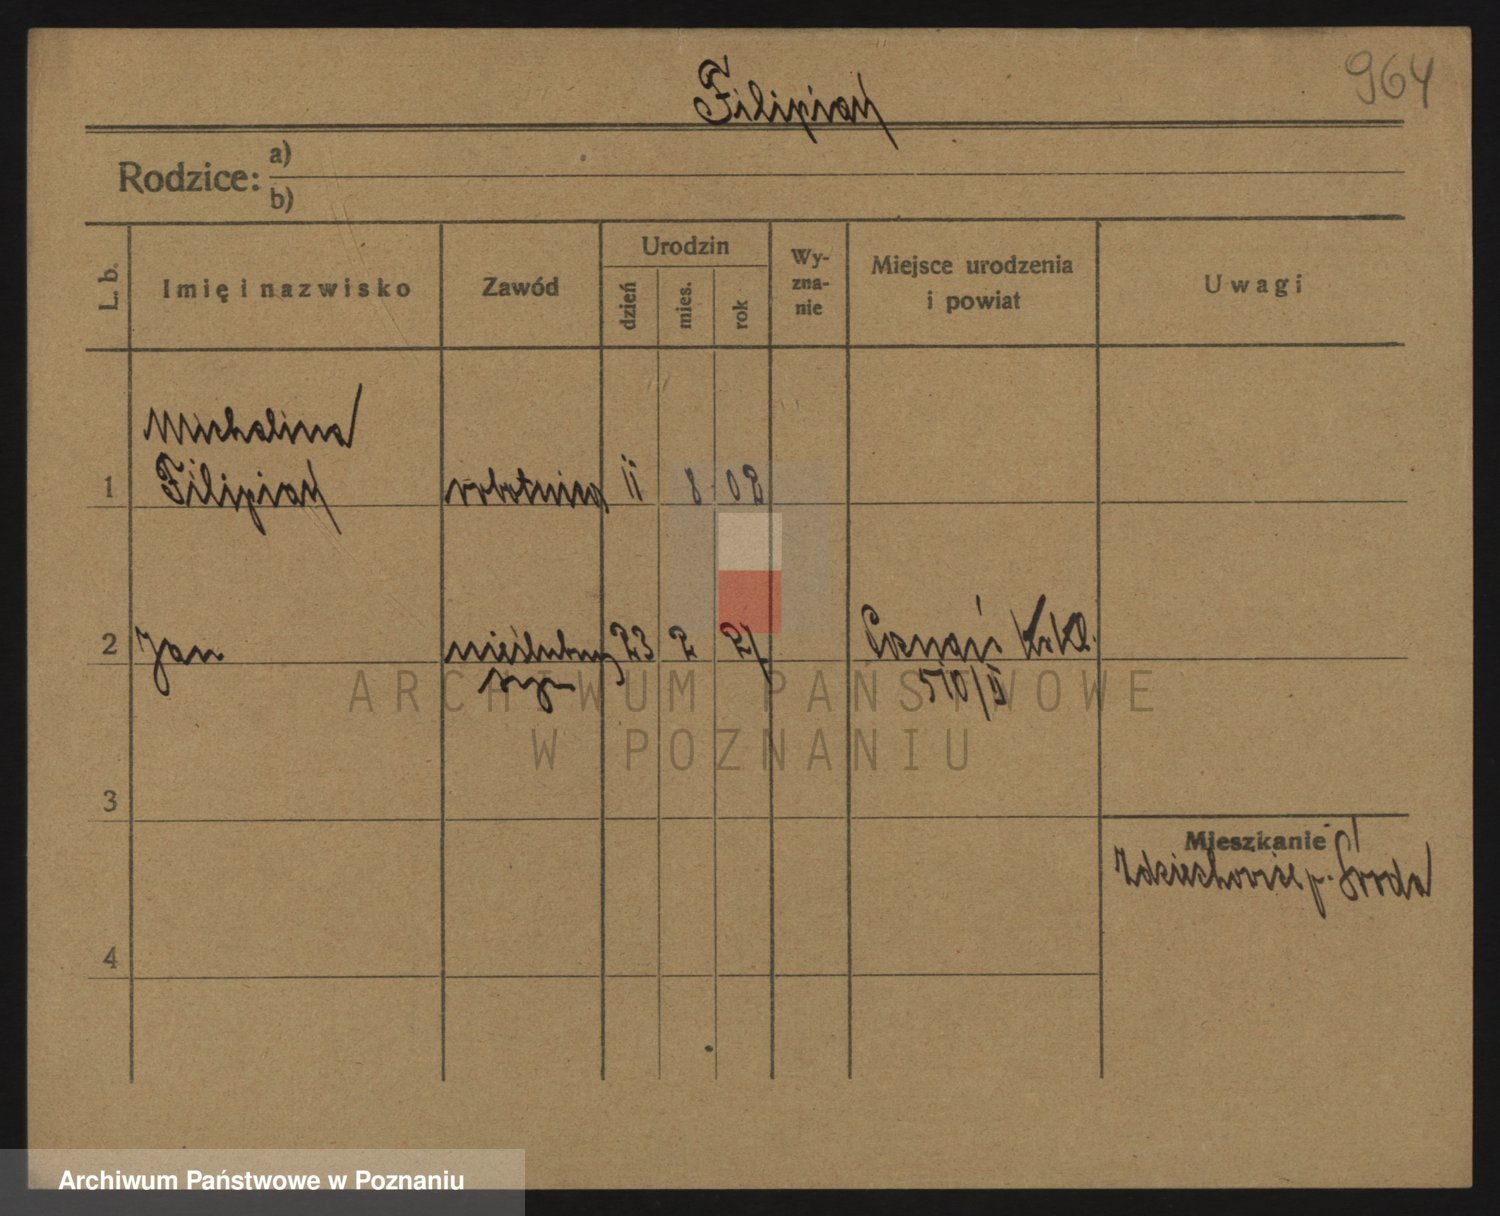 964
Filipiak
Rodzice:
a)
b)
L. b.
Imię i nazwisko
Zawód
Urodzin
dzień
mies.
rok
Wy-
zna-
nie
Miejsce urodzenia
i powiat
Uwagi
Michalina
1 Filipiak robotnica 11 8 02
2 Jan nieślubny 23 2 27 Poznań
syn 510/II
3
Mieszkanie
Zdziechowice p. Środa
4
ARCHIWUM PAŃSTWOWE
W POZNANIU
Archiwum Państwowe w Poznaniu